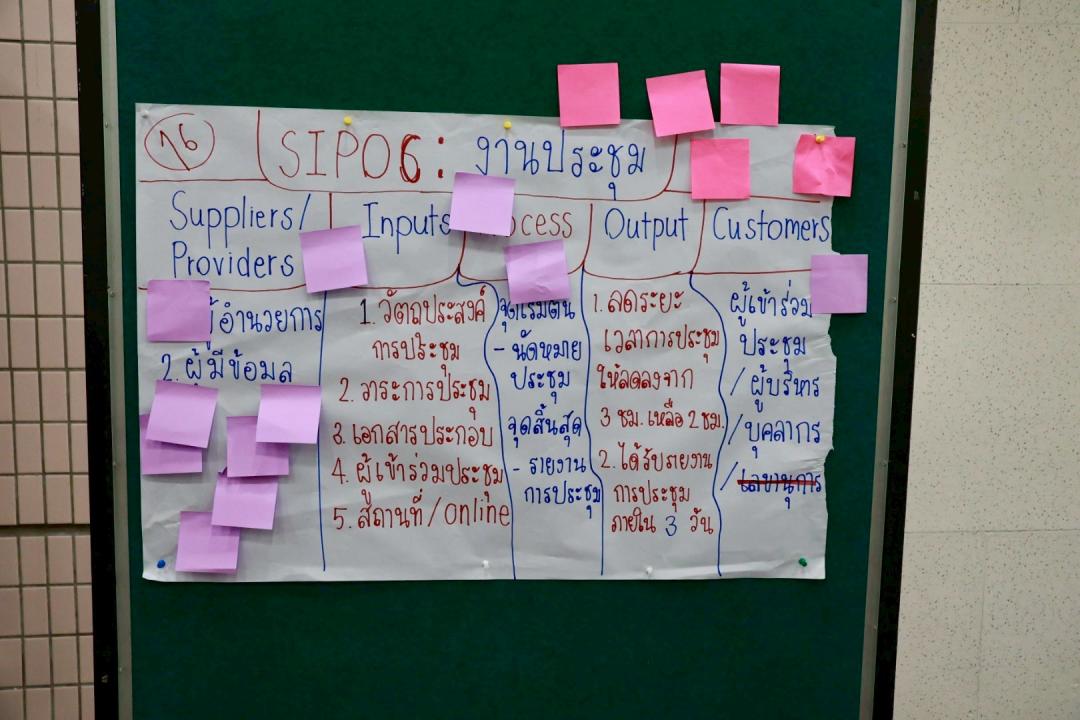 16
SIPOC: งานประชุม
Suppliers/
Providers
Inputs
Output
Customers
อำนวยการ
2. ผู้มีข้อมูล
1. วัตถุประสงค์
การประชุม
2. วาระการประชุม
3. เอกสารประกอบ
4. ผู้เข้าร่วมประชุม
5. สถานที่/online
จุดเริ่มต้น
- นัดหมาย
ประชุม
จุดสิ้นสุด
- รายงาน
การประชุม
1. ลดระยะ
เวลาการประชุม
ให้ลดลงจาก
3 ชม. เหลือ 2 ชม.
2. ได้รับรายงาน
การประชุม
ภายใน 3 วัน
ผู้เข้าร่วม
ประชุม
/ ผู้บริหาร
/ บุคลากร
/ เลขานุการ